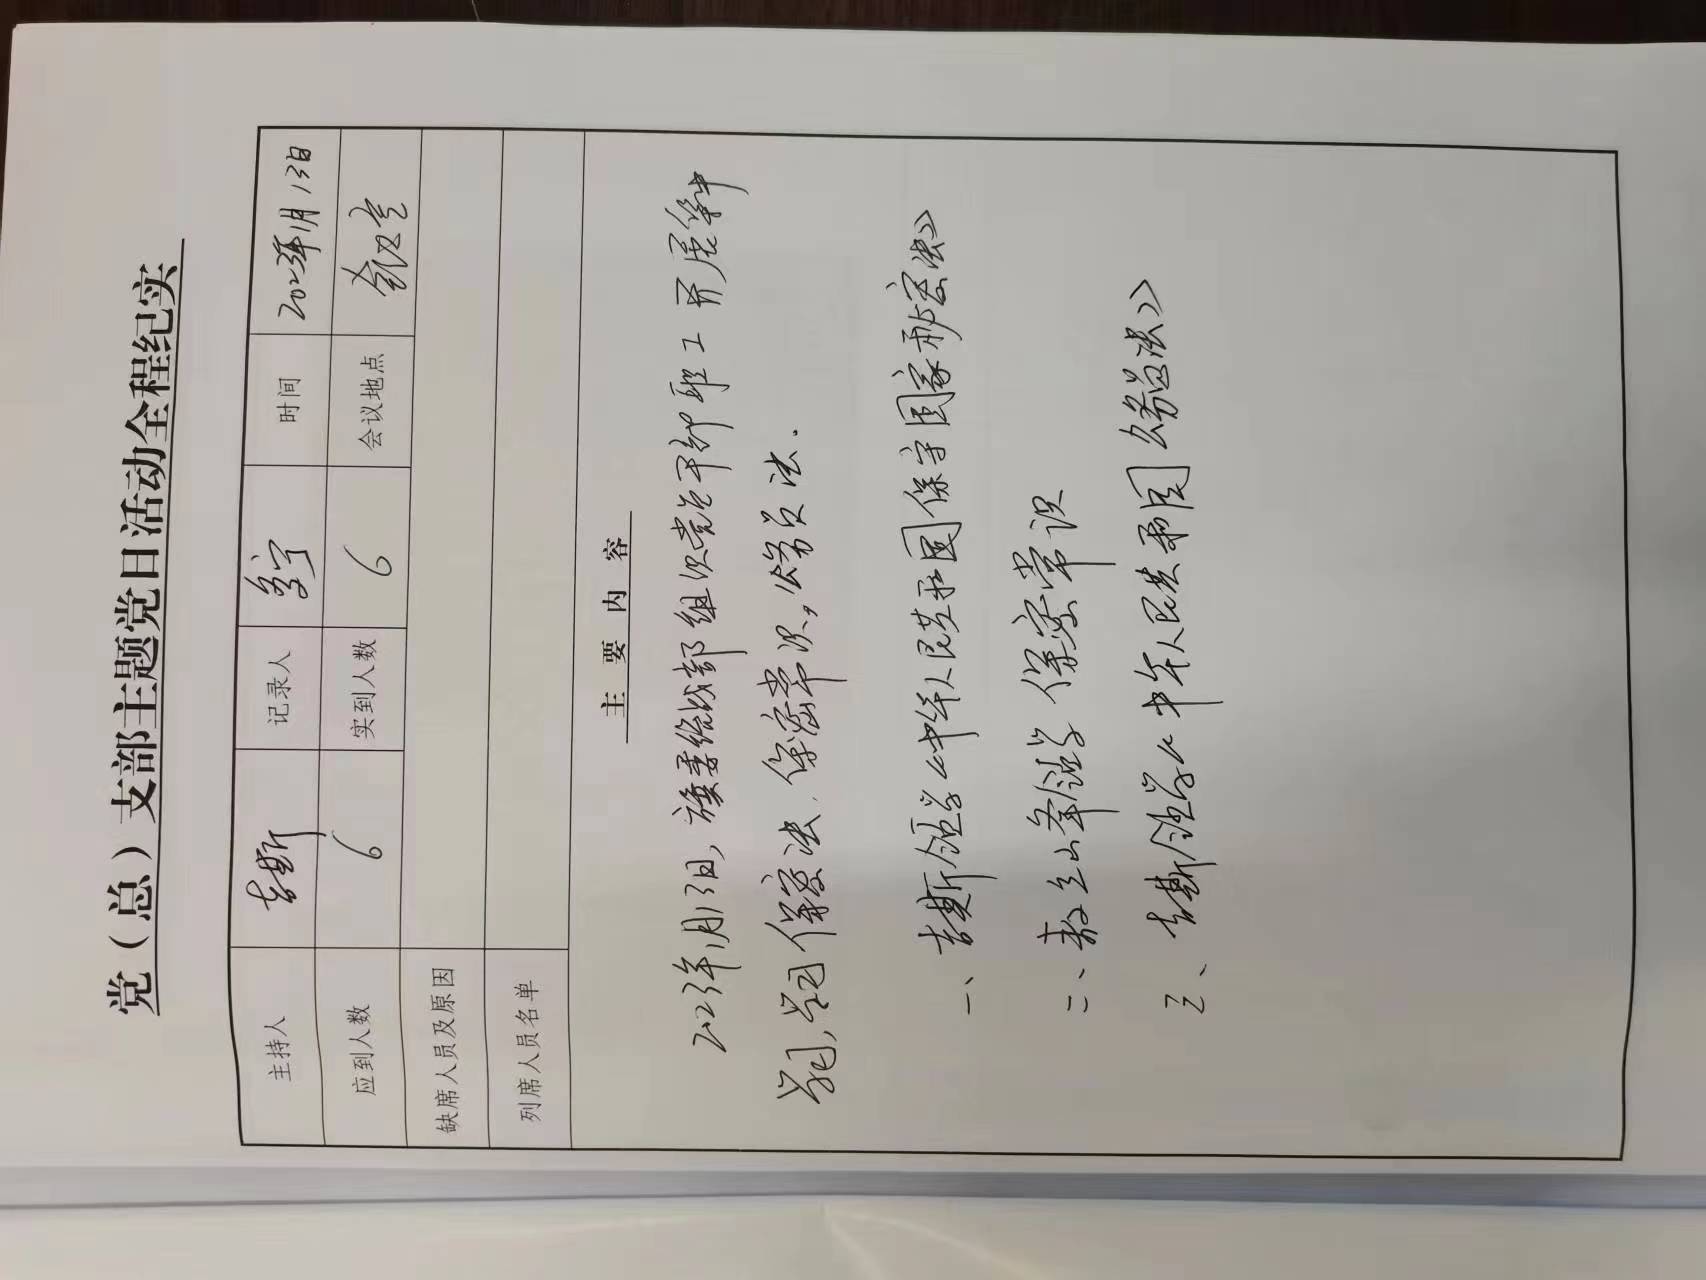 党（总）支部主题党日活动全程纪实
主持人 吉斯 记录人 时间 2023年1月13日
应到人数 6 实到人数 6 会议地点 会议室
缺席人员及原因
列席人员名单
主要内容
2023年1月13日，旗委统战部组织党员干部职工开展集中
学习，学习保密法、保密常识，公务员法．
一、吉斯领学《中华人民共和国保守国家秘密法》
二、敖立山峰领学保密常识
三、吉斯领学《中华人民共和国公务员法》